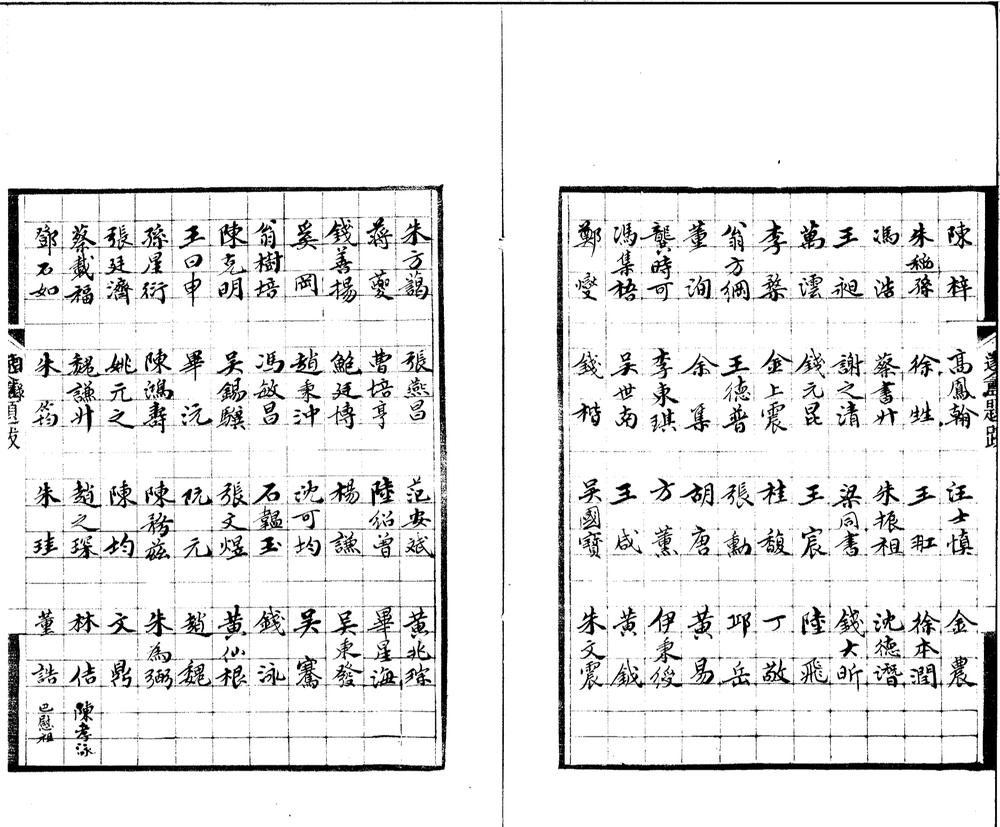 陳梓 高鳳翰 汪士慎 金農
朱稻孫 徐甡 王 徐本潤
馮浩 蔡書升 朱振祖 沈德潛
王昶 謝之清 梁同書 錢大昕
萬澐 錢元昆 王宸 陸飛
李棨 金上震 桂馥 丁敬
翁方綱 王德普 張勳 邱岳
董洵 余集 胡唐 黃易
龔時可 李東琪 方薰 伊秉綬
馮集梧 吳世南 王咸 黃鉞
鄭燮 錢楷 吳國寶 朱文震
朱方藹 張燕昌 范安斌 黃兆琮
蔣夔 曹培亨 陸紹曾 畢星海
錢善揚 鮑廷博 楊謙 吳東發
奚岡 趙秉沖 沈可均 吳騫
翁樹培 馮敏昌 石韞玉 錢泳
陳克明 吳錫 張文煜 黃仙根
王曰申 畢沅 阮元 趙魏
孫星衍 陳鴻壽 陳務滋 朱為弼
張廷濟 姚元之 陳均 文鼎
蔡載福 魏謙升 趙之琛 林佶 陳孝泳
鄧石如 朱筠 朱珪 董誥 巴慰祖